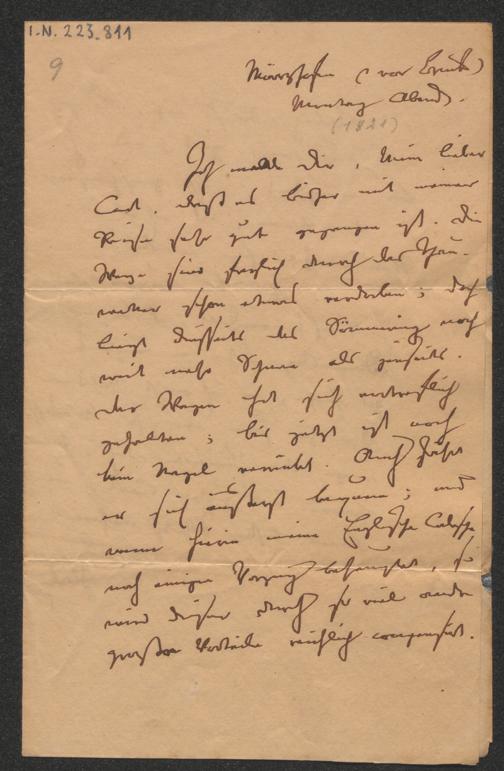 I.N. 223.811
9
Mürzhofen (vor Bruck)
Montag Abend.
(1821)
Ich melde dir, mein lieber
Carl, daß es bisher mit meiner
Reise sehr gut gegangen ist. Die
Wege sind freilich durch das Thau-
wetter schon etwas verdorben; doch
liegt dießseits des Sömmering noch
weit mehr Schnee als jenseits.
Der Wagen hat sich vortrefflich
gehalten; bis jetzt ist noch
kein Nagel verrückt. Auch fährt
er sich äußerst bequem; und
wenn hierin meine Englische Calesche
noch einigen Vorzug behauptet, so
wird dieser durch so viel andre
große Vortheile reichlich compensirt.